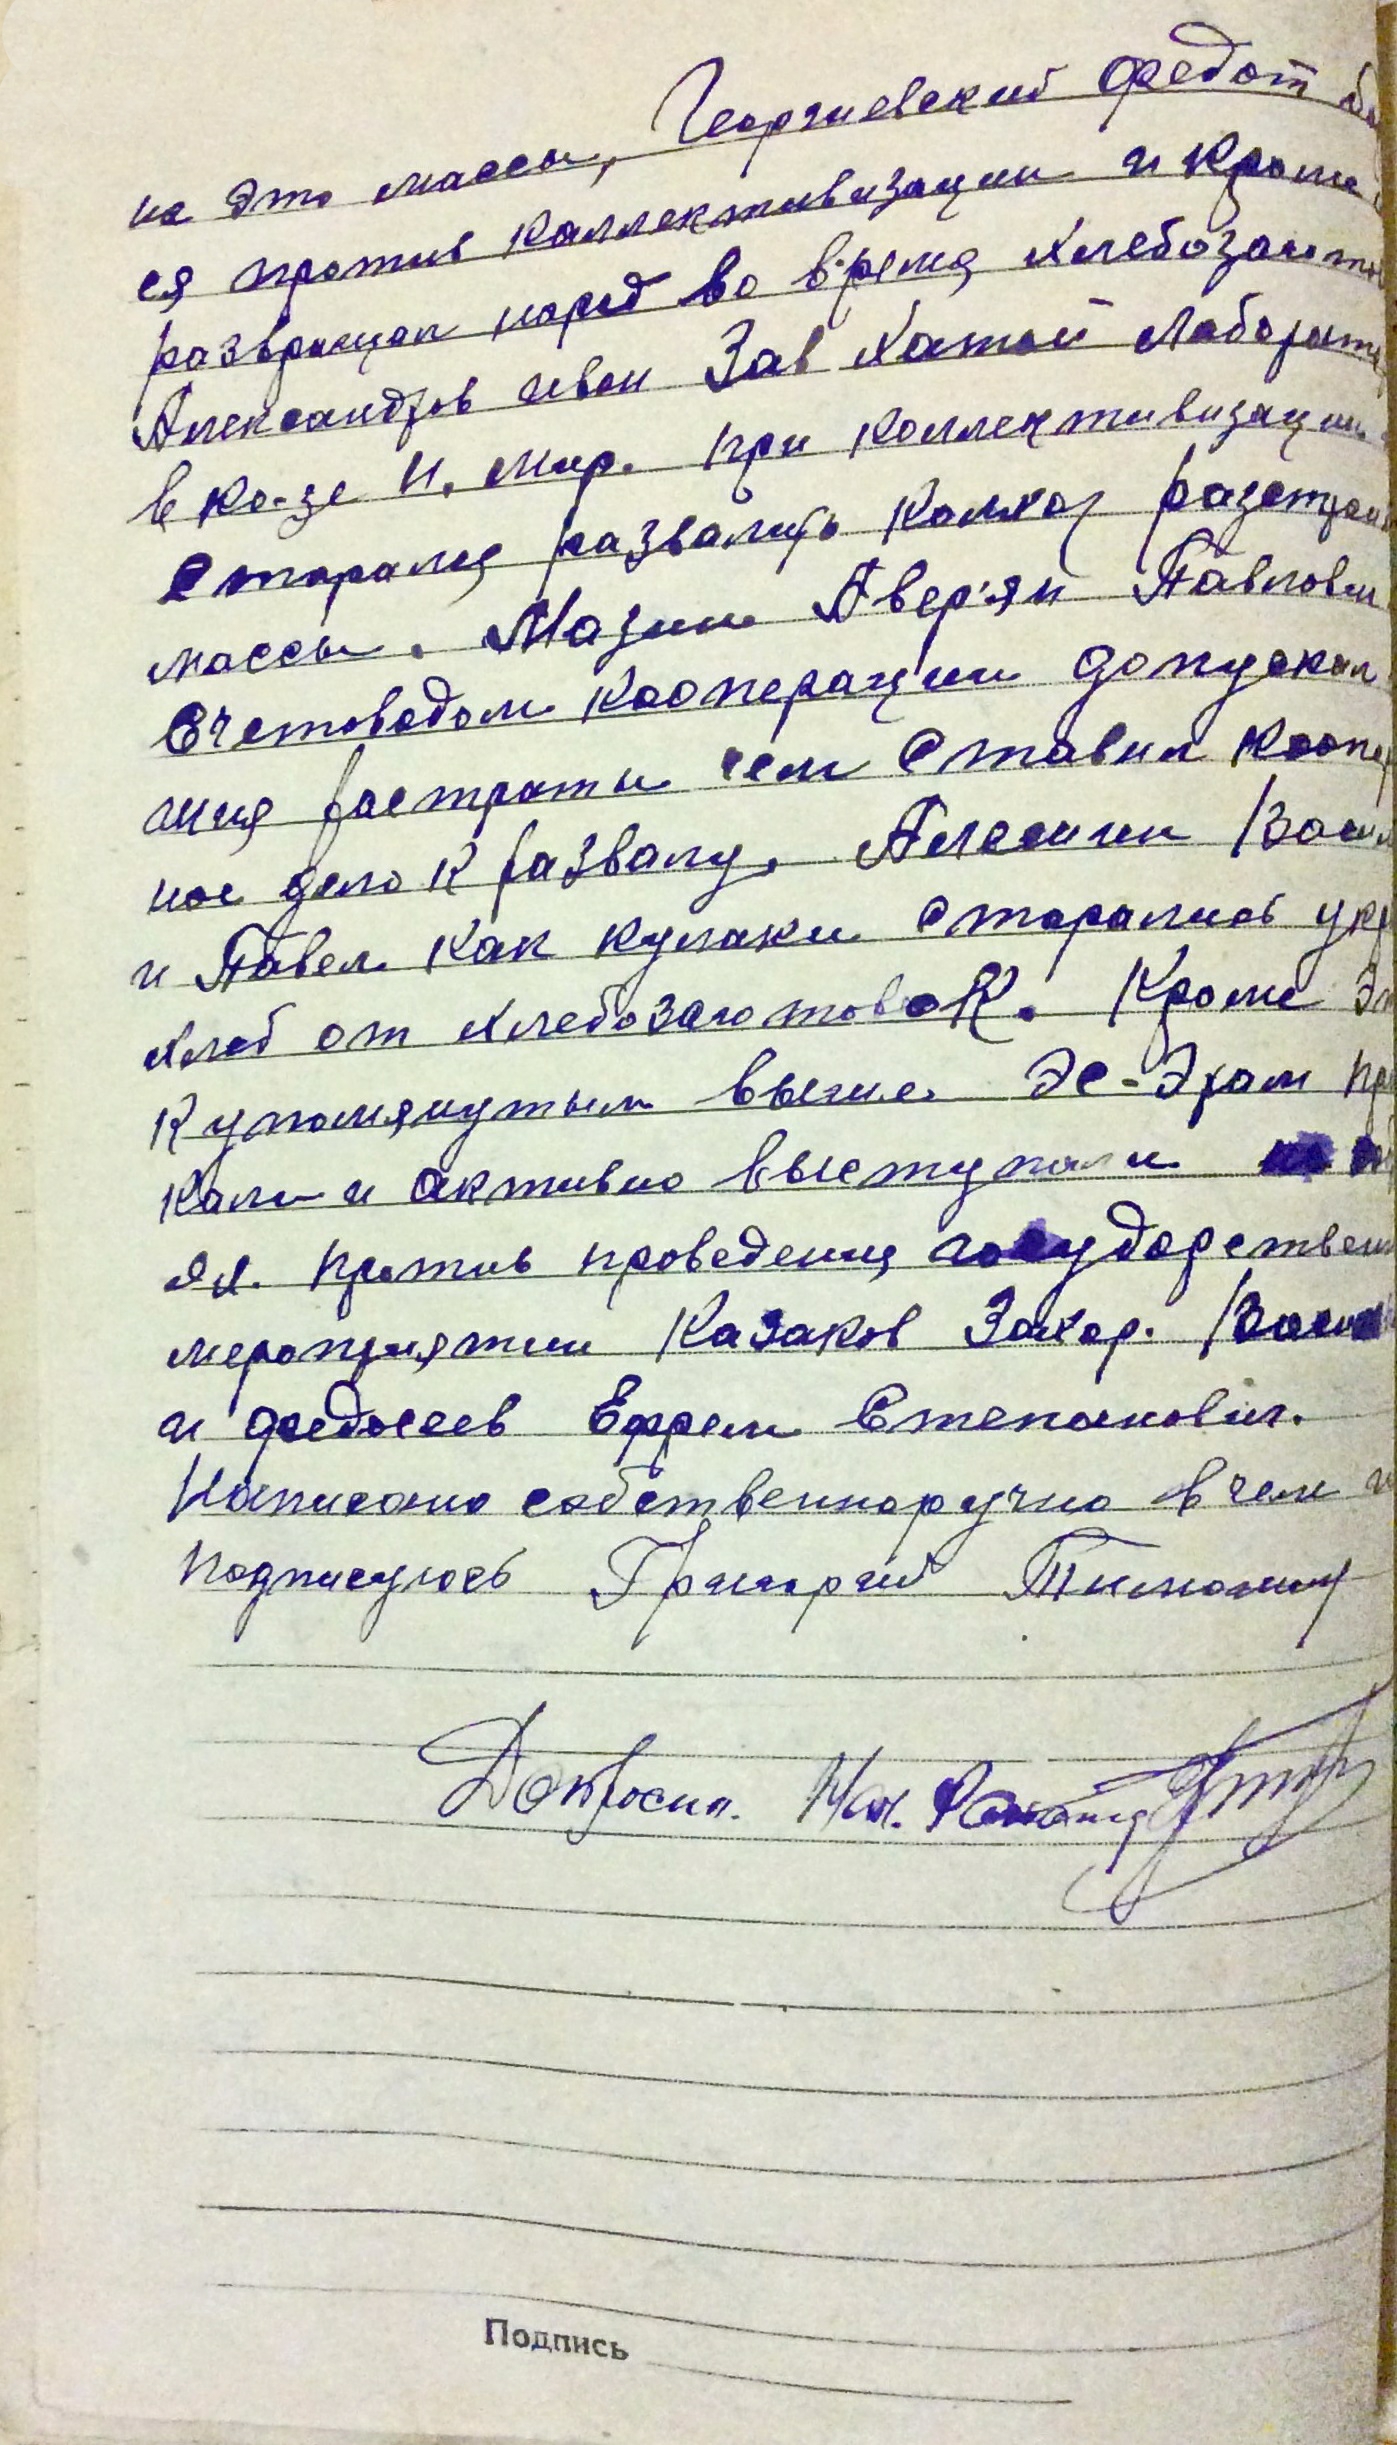 на это массы, Георгиевский Федот
ся против коллективизации и кроме
развращал народ во время хлебозагото
Александров иван Зав Хатой Лаборато
в ко-зе Н. Мир. при коллективизации
старался развалить колхоз расстрои
массы. Мазин Аверьян Павлович
Счетоводом кооперации допускал
ния растраты чем ставил коопер
ное дело к развалу. Алешин Васил
и Павел как кулаки старались укр
хлеб от хлебозаготовок. Кроме эт
К упомянутым выше Эс-Эрам при
кали и активно выступали
ях против проведения государствен
мероприятии Казаков Захар. Васи
и Федосеев Ефрем Степанович.
Написано собственноручно в чем и
подписуюсь Григорий Тимонин
Допросил. Нач.
Подпись